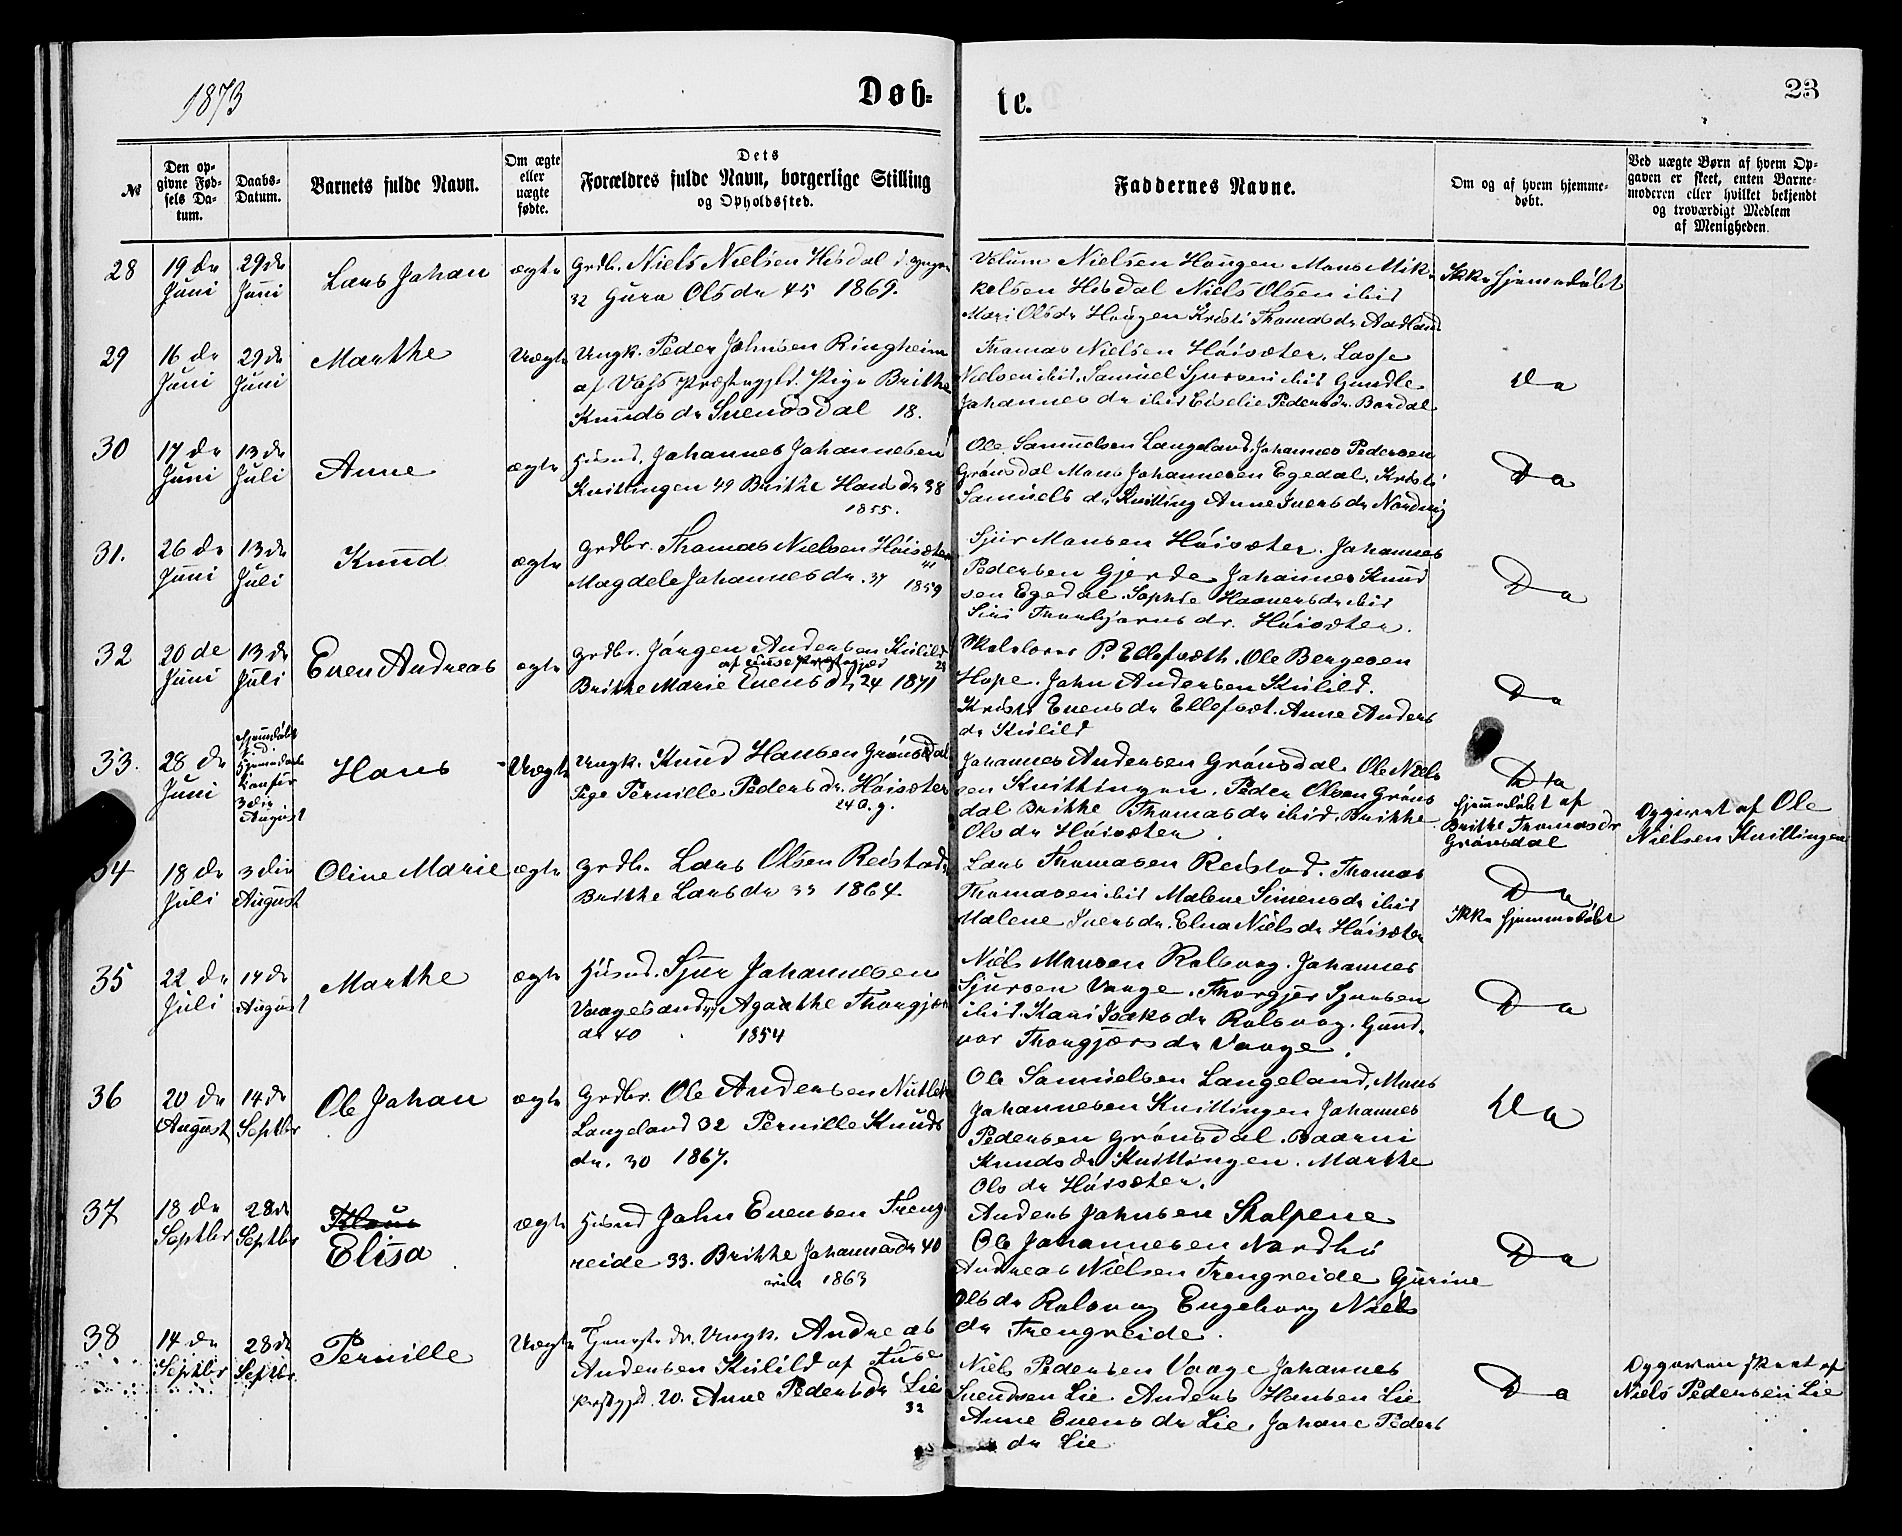 1873
Døb-
te.
23
№
Den op-
givne Fød-
sels Da-
tum.
Daabs-
Datum.
Barnets fulde Navn.
Om ægte
eller
uægte
fødte.
Dets
Forældres fulde Navn, borgerlige Stilling
og Opholdssted.
Faddernes Navne.
Om og af hvem hjemme-
døbt.
Ved uægte Børn af hvem Op-
gaven er skeet, enten Barne-
moderen eller hvilket bekjendt
og troværdigt Medlem
af Menigheden.
28
19 de
Juni
29 de
Juni
Lars Johan
ægte
Grdbr. Niels Nielsen Hisdal
32 Gura Olsdr 45 1869.
Nielsen Haugen Mons Mik-
kelsen Hisdal Niels Olsen ibid
Mari Olsdr Haugen Kristi Thomasdr Aadland
Ikke hjemmedøbt
29
16 de
Juni
29 de
Juni
Marthe
Uægte
Ungk. Peder Johnsen Ringheim
af Voss Præstegjld. Pige Brithe
Knudsdr Svendsdal 18.
Thomas Nielsen Høisæter. Lasse
Nielsen ibid. Samuel Sjursen ibid Gundle
Johannesdr ibid Eiselie Pedersdr. Bordal
Do
30
17 de
Juni
13 de
Juli
Anne
ægte
Husmd. Johannes Johannesen
Kvittingen 49 Brithe Hansdr 38
1855.
Ole Samuelsen Langeland. Johannes Pedersen
Grönsdal Mons Johannesen Egedal, Kristi
Samuelsdr Kvitting Anne Iversdr Nordvig
Do
31.
26 de
Juni
13 de
Juli
Knud
ægte
Grdbr. Thomas Nielsen Höisæter
41
Magdele Johannesdr. 37 1859
Sjur Monsen Höisæter. Johannes
Pedersen Gjerde Johannes Knud
sen Egedal. Sophie Haaversdr ibid
Siri Thorbjørnsdr. Höisæter.
Do
32
20 de
Juni
13 de
Juli
Even Andreas
ægte
Grdbr. Jörgen Andersen Kilild
af Fuse Præstegjld 28
Brithe Marie Evensdr 24 1871
Skolelærer P. Ellefsæth. Ole Bergesen
Hope. John Andersen Kilild.
Kristi Evensdr Ellefsæt. Anne Anders
dr Kilild
Do
33.
28 de
Juni
hjemmedøbt
3die
August
Hans
Uægte
Ungk. Knud Hansen Grönsdal
Pige Pernille Pedersdr. Höisæter
24 a. g.
Johannes Andersen Grönsdal Ole Niels
sen Kvittingen. Peder Olsen Gröns
dal Brithe Thomasdr ibid. Brithe
Olsdr Höisæter.
hjemmedøbt af
Brithe Thomasdr
Grönsdal
Opgivet af Ole
Nielsen Kvittingen
34
18 de
Juli
3 die
August
Oline Marie
ægte
Grdbr. Lars Olsen Redstad
Brithe Larsdr 33 1864.
Lars Thomasen Redstad. Thomas
Thomasen ibid Malene Simensdr ibid
Malene Iversdr. Elna Nielsdr Höisæter
Do
Ikke hjemmedøbt
35
22 de
Juli
14 de
August
Marthe
ægte
Husmd. Sjur Johannesen
Vaagesand Agathe Thorgjers
dr 40 1854
Niels Monsen Rolsvog. Johannes
Sjursen Vaage. Thorgjer Sjursen
ibid. Kari Isaksdr Rolsvog. Gund-
vor Thorgjersdr Vaage.
Do
36
20 de
August
14 de
Septbr
Ole Johan
ægte
Grdbr. Ole Andersen
Langeland 32 Pernille Knuds
dr. 30 1867.
Ole Samuelsen Langeland, Mons
Johannesen Kvittingen Johannes
Pedersen Grönsdal. Baarni
Knudsdr Kvittingen. Marthe
Olsdr Höisæter.
Do
37
18 de
Septbr
28 de
Septbr
Elisa
ægte
Husmd John Evensen Treng-
reide 33. Brithe Johannesdr 40
1863
Anders Johnsen Skolpene
Ole Johannesen Nordbö
Andreas Nielsen Trengreide Gurine
Olsdr Rolsvog Engeborg Niels
dr Trengreide.
Do
38
14 de
Septbr
28 de
Septbr
Pernille
Uægte
Ungk. Andreas
Andersen Kilild af Fuse
Præstgjld. 20. Anne Pedersdr Lie
32
Niels Pedersen Vaage Johannes
Svendsen Lie Anders Hansen Lie
Anne Evensdr Lie. Johane Peders
dr Lie
Do
Opgaven skeet af
Niels Pedersen Lie